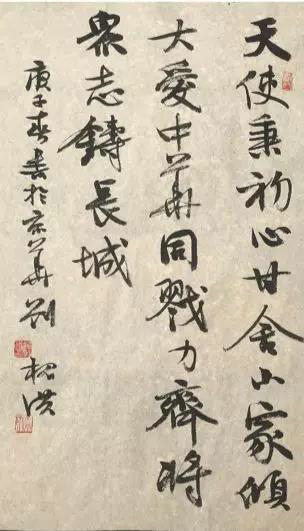 天使秉初心甘舍小家傾
大愛中華同戮力齊將
衆志鑄長城
庚子春書於京華劉洪